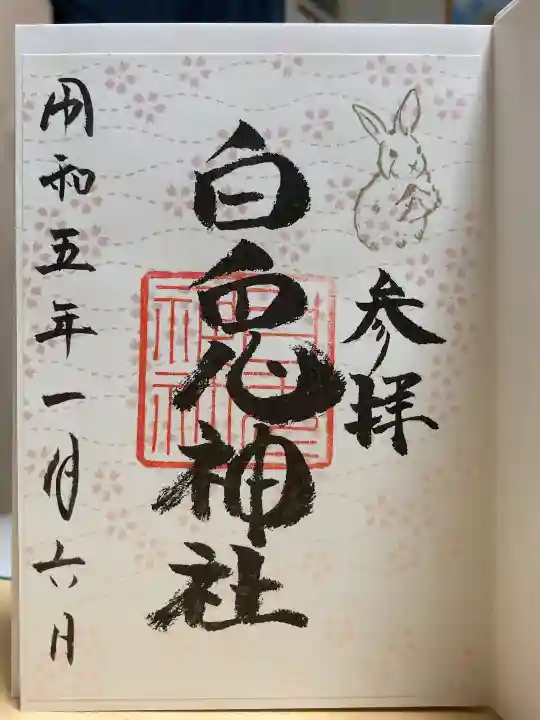 参拝
白兎神社
令和五年一月六日